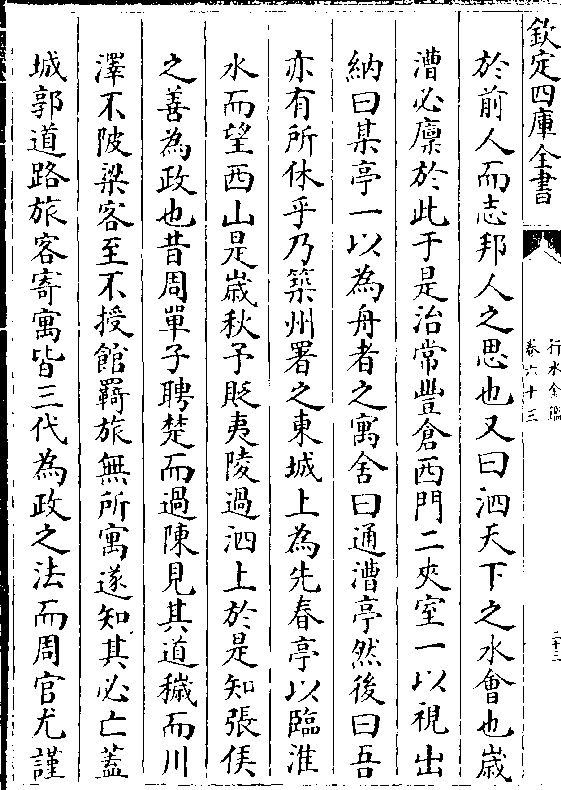 欽定四庫全書
行水金鑑
卷六十三
二十三
於前人而志邦人之思也又曰泗天下之水會也歲
漕必廩於此于是治常豐倉西門二夾室一以視出
納曰某亭一以為舟者之寓舍曰通漕亭然後曰吾
亦有所休乎乃築州署之東城上為先春亭以臨淮
水而望西山是歲秋予貶夷陵過泗上於是知張侯
之善為政也昔周單子聘楚而過陳見其道穢而川
澤不陂梁客至不授館羇旅無所寓遂知其必亡葢
城郭道路旅客寄寓皆三代為政之法而周官尤謹